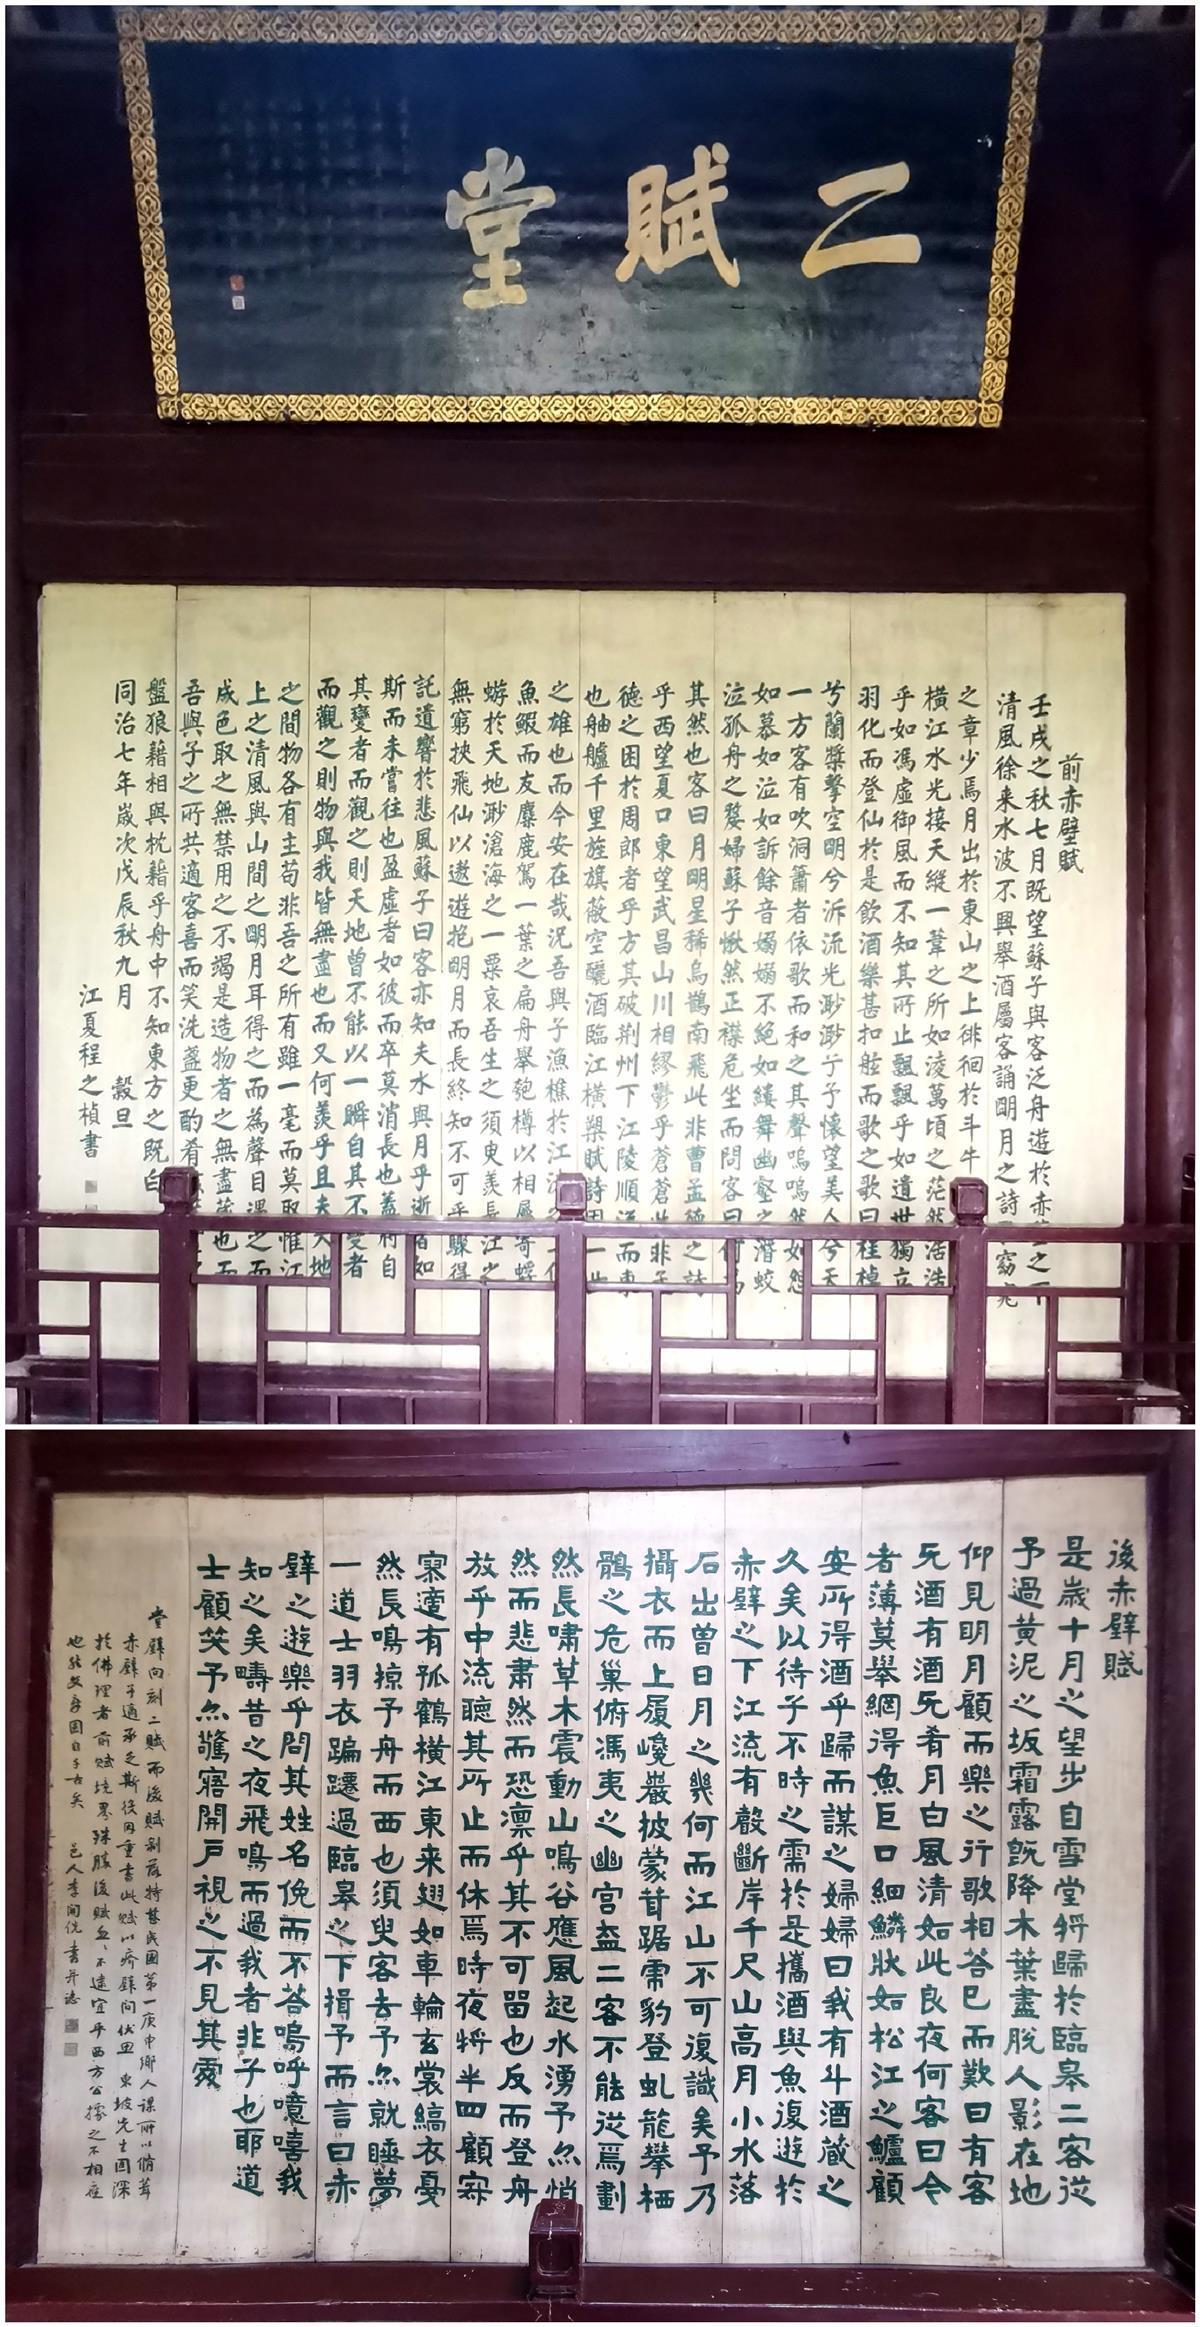 二賦堂
前赤壁賦
壬戌之秋七月既望蘇子與客泛舟遊於赤壁之下
清風徐来水波不興舉酒屬客誦明月之詩窈窕
之章少焉月出於東山之上徘徊於斗牛
橫江水光接天縱一葦之所如淩萬頃之茫然浩浩
乎如馮虛御風而不知其所止飄飄乎如遺世獨立
羽化而登仙於是飲酒樂甚扣舷而歌之歌曰桂棹
兮蘭槳擊空明兮泝流光渺渺兮予懷望美人兮天
一方客有吹洞簫者依歌而和之其聲嗚嗚然如怨
如慕如泣如訴餘音嫋嫋不絕如縷舞幽壑之潛蛟
泣孤舟之嫠婦蘇子愀然正襟危坐而問客曰何為
其然也客曰月明星稀烏鵲南飛此非曹孟德之詩
乎西望夏口東望武昌山川相繆鬱乎蒼蒼此非孟
德之困於周郎者乎方其破荆州下江陵順流而東
也舳艫千里旌旗蔽空釃酒臨江橫槊賦詩固一世
之雄也而今安在哉況吾與子漁樵於江渚之上侣
魚鰕而友麋鹿駕一葉之扁舟舉匏樽以相屬寄蜉
蝣於天地渺滄海之一粟哀吾生之須臾羨長江之
無窮挾飛仙以遨遊抱明月而長終知不可乎驟得
託遺響於悲風蘇子曰客亦知夫水與月乎逝者如
斯而未嘗往也盈虛者如彼而卒莫消長也蓋將自
其變者而觀之則天地曾不能以一瞬自其不變者
而觀之則物與我皆無盡也而又何羨乎且夫天地
之間物各有主苟非吾之所有雖一毫而莫取惟江
上之清風與山間之明月耳得之而為聲目遇之而
成色取之無禁用之不竭是造物者之無盡藏也而
吾與子之所共適客喜而笑洗盞更酌肴
盤狼藉相與枕藉乎舟中不知東方之既白
同治七年歲次戊辰秋九月 穀旦
江夏程之楨書
後赤壁賦
是歲十月之望步自雪堂將歸於臨皋二客從
予過黃泥之坂霜露既降木葉盡脫人影在地
仰見明月顧而樂之行歌相答已而歎曰有客
无酒有酒无肴月白風清如此良夜何客曰今
者薄莫舉網得魚巨口細鱗狀如松江之鱸顧
安所得酒乎歸而謀之婦婦曰我有斗酒蔵之
久矣以待子不時之需於是攜酒與魚復遊於
赤壁之下江流有聲斷岸千尺山高月小水落
石出曾日月之幾何而江山不可復識矣予乃
攝衣而上履巉巖披蒙茸踞虎豹登虬龍攀栖
鶻之危巢俯馮夷之幽宮盖二客不能從焉劃
然長嘯草木震動山鳴谷應風起水湧予亦悄
然而悲肅然而恐凛乎其不可留也反而登舟
放乎中流聽其所止而休焉時夜將半四顧寂
寥適有孤鶴橫江東来翅如車輪玄裳縞衣戛
然長鳴掠予舟而西也須臾客去予亦就睡夢
一道士羽衣蹁躚過臨皋之下揖予而言曰赤
壁之遊樂乎問其姓名俛而不答嗚呼噫嘻我
知之矣疇昔之夜飛鳴而過我者非子也耶道
士顧笑予亦驚寤開戶視之不見其處
堂壁向刻二賦而後賦剝落特甚民國第一庚申鄉人謀所以脩葺
赤壁予適承乏斯役因重書此賦以齊壁向伏思東坡先生固深
於佛理者前賦境界殊勝後賦不逮宜乎西方公據之不相
邑人李開侁書并誌